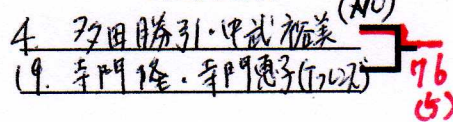 4. 多田勝引・中武裕美(NO)
19. 寺門隆・寺門恵子(Tフレンズ)
76
(5)